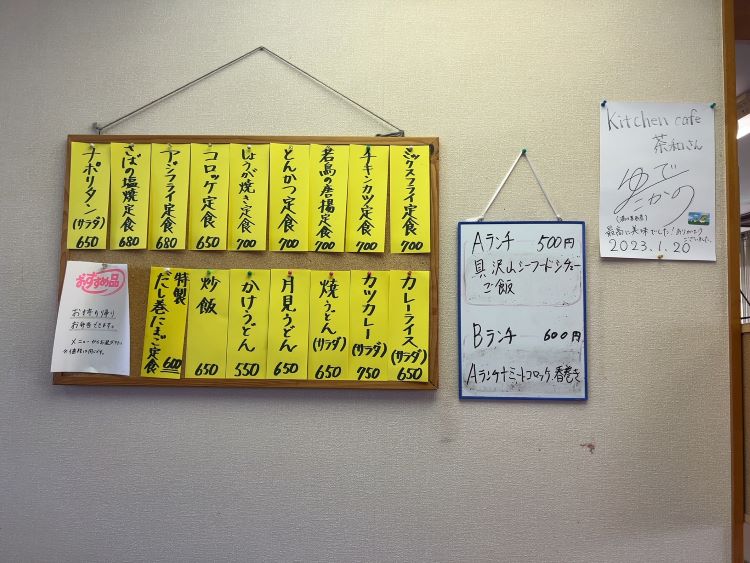 ミックスフライ定食 700
チキンカツ定食 700
若鳥の唐揚定食 700
とんかつ定食 700
しょうが焼き定食 700
コロッケ定食 650
アジフライ定食 680
さばの塩焼定食 680
ナポリタン(サラダ) 650
カレーライス(サラダ) 650
カツカレー(サラダ) 750
焼うどん(サラダ) 650
月見うどん 650
かけうどん 550
炒飯 650
特製
だし巻たまご定食 600
おすすめ品
お持ち帰り
お弁当できます。
メニューからお選び下さい
Aランチ 500円
具沢山シーフードシチュー
ご飯
Bランチ 600円
Aランチ+ミートコロッケ、春巻き
Kitchen cafe
茶和さん
ゆでたかの
最高に美味でした!ありがとう
ございました。
2023.1.20